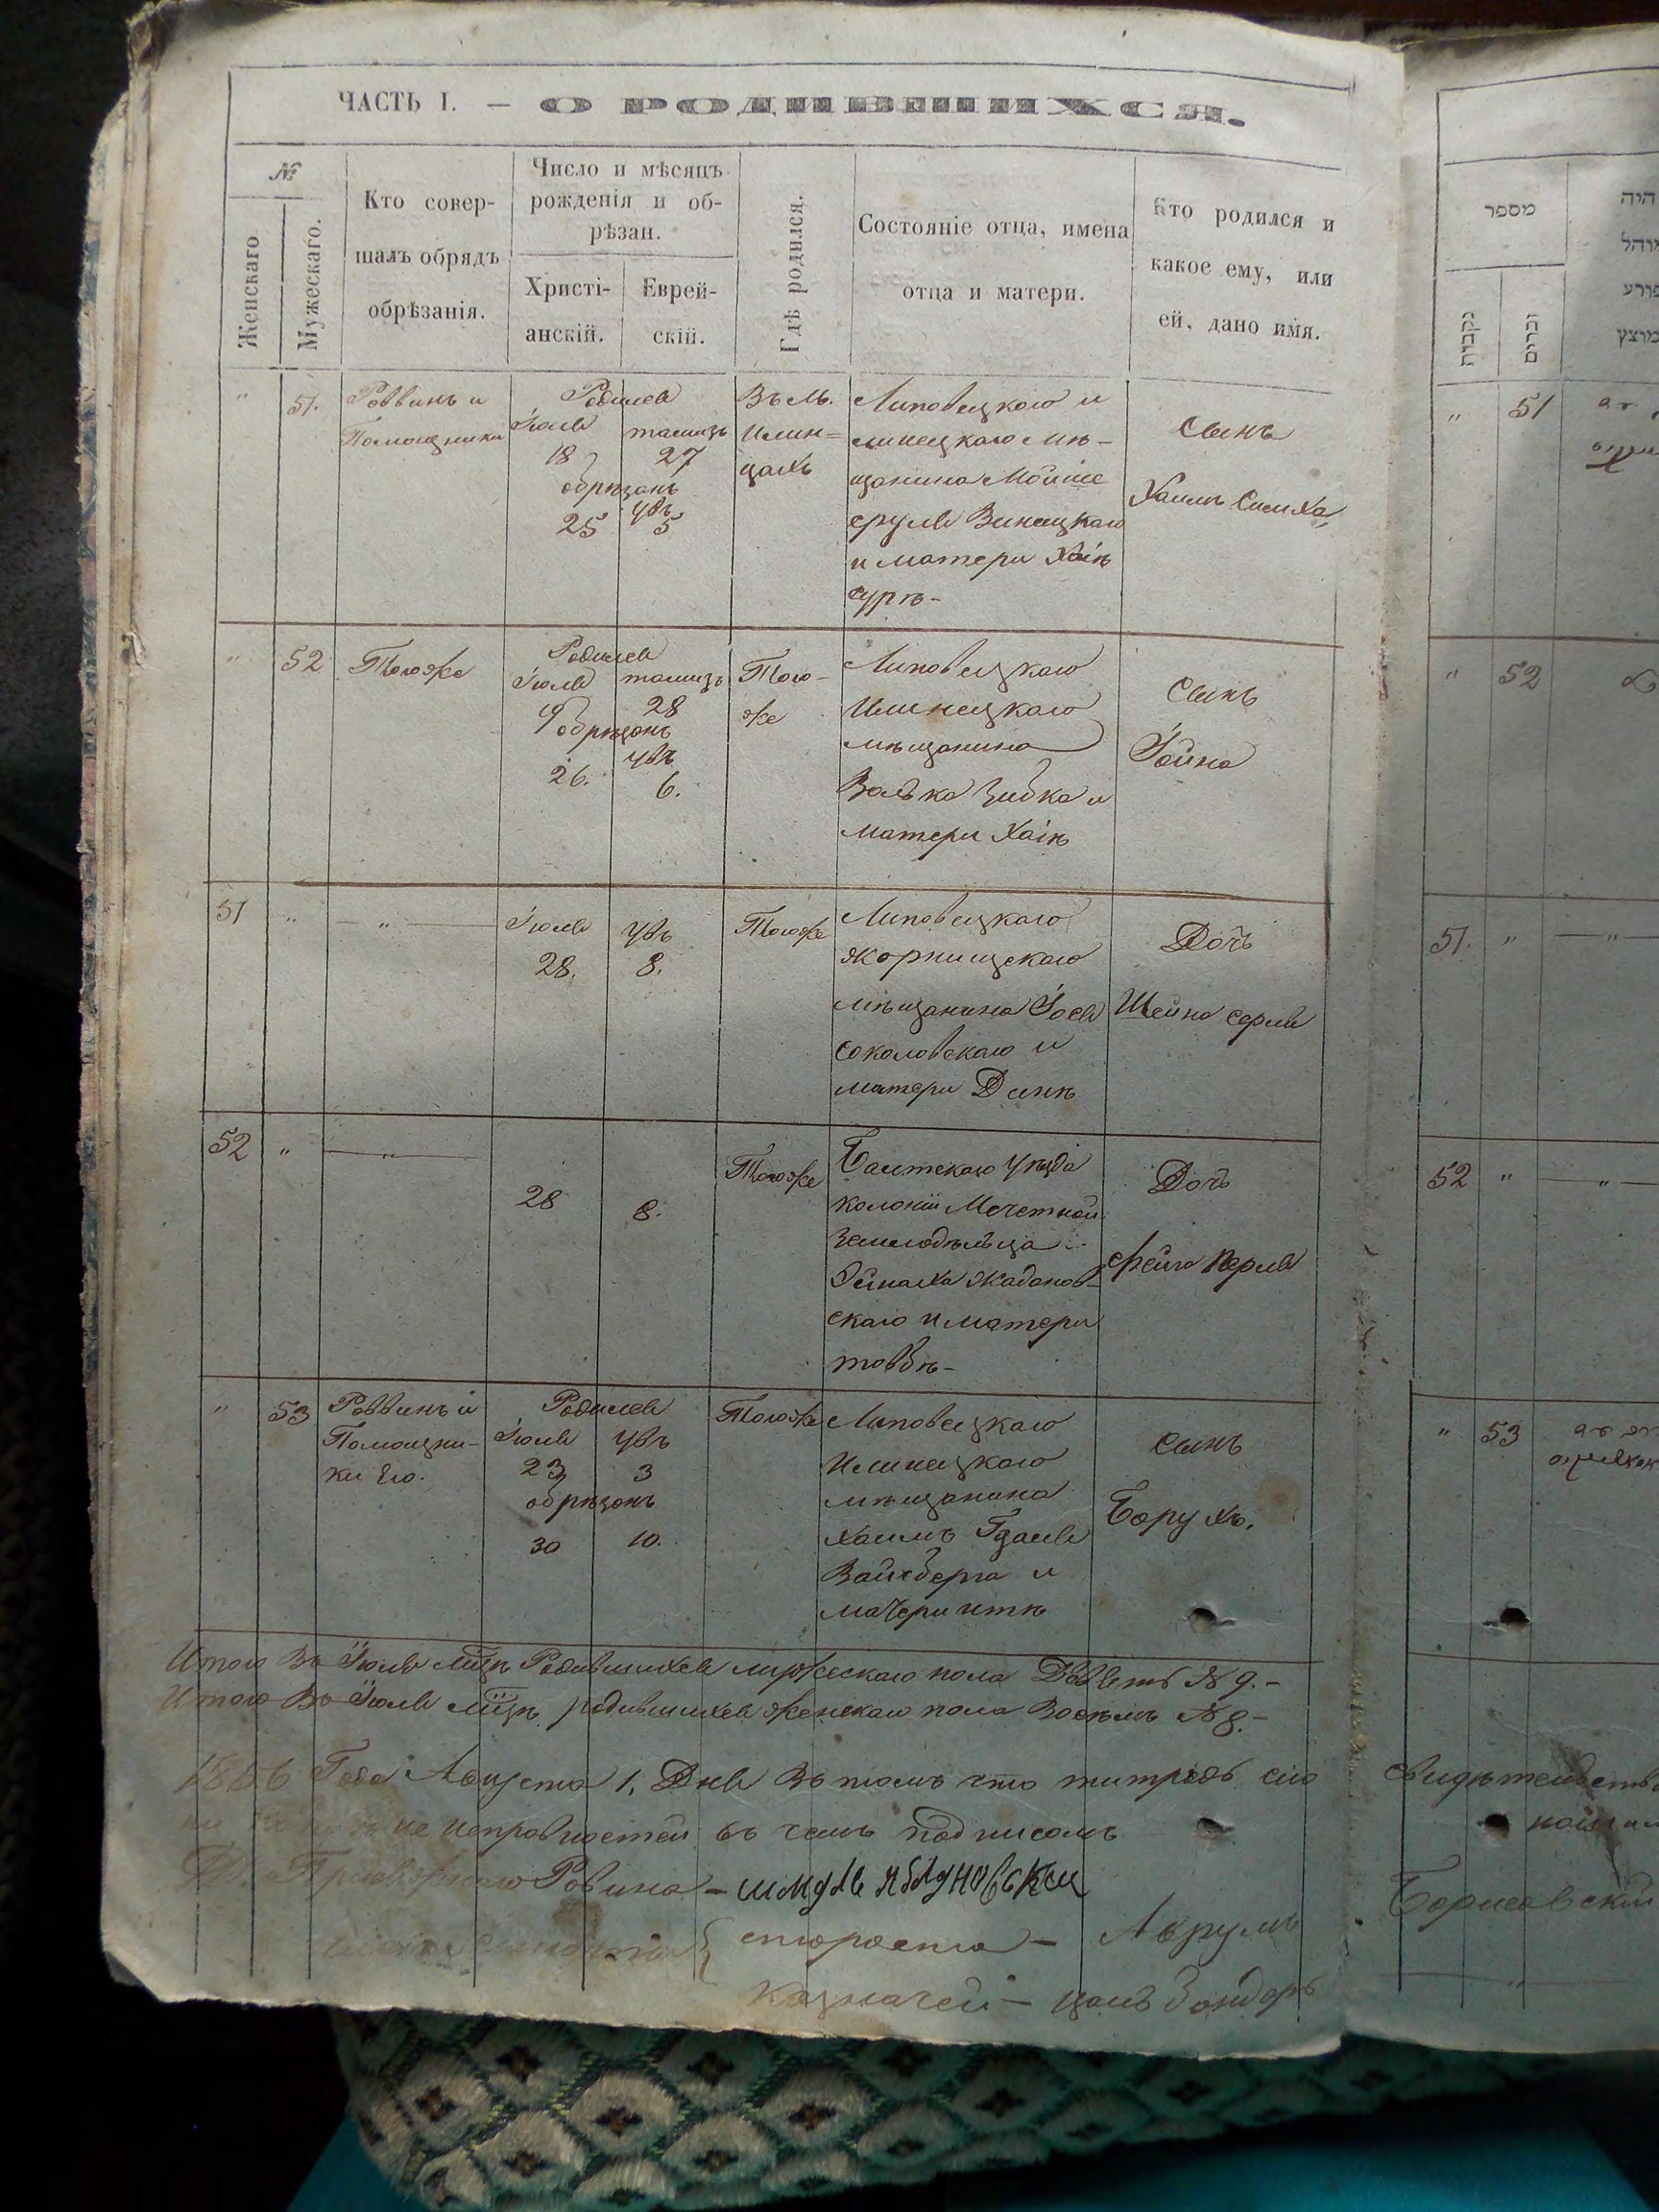 ЧАСТЬ I. — О РОДИВШИХСЯ.
№
Женскаго
Мужескаго.
Кто совер-
шалъ обрядъ
обрѣзанія.
Число и мѣсяцъ
рожденія и об-
рѣзан.
Христі-
анскій.
Еврей-
скій.
Гдѣ родился.
Состояніе отца, имена
отца и матери.
Кто родился и
какое ему, или
ей, дано имя.
"
51.
Раввинъ и
Помощники
Родился
Іюля
тамузъ
18
27
обрѣзанъ
увъ
25
5
Въ м.
Илин=
цахъ
Липовецкаго и
линецкаго мѣ-
щанина Мойше
сруля Винецкаго
и матери Хаіи
сурѣ-
Сынъ
Хаимъ Симха,
"
52
Тогоже
Родился
Іюля
тамузъ
19
28
обрѣзанъ
увъ
26.
6.
Того-
же
Липовецкаго
Илинецкаго
мѣщанина
Волька Зибка и
матери Хаіѣ
Сынъ
Іойна
51
"
— " —
Іюля
увъ
28.
8.
Тогоже
Липовецкаго
жорнищскаго
мѣщанина Іося
соколовскаго и
матери Динѣ
Дочь
Шейна серля
52
"
— " —
28
8.
Тогоже
Балтскаго уѣзда
колоніи Мечетной
земледѣльца
Жаданов-
скаго и матери
товбѣ-
Дочь
Фейга Перля
"
53
Раввинъ и
Помощни-
ки Его.
Родился
Іюля
увъ
23
3
обрѣзанъ
30
10.
Тогоже
Липовецкаго
Илинецкаго
мѣщанина
Хаимъ Гдаля
Вайсберга и
матери итѣ
Сынъ
Борухъ.
Итого Въ Іюля мцѣ Родившихся мужескаго пола Девять № 9.-
Итого Въ Іюля мцѣ родившихся женскаго пола Восемь № 8.-
1856 Года Августа 1. Дня Въ томъ что титрадь сію
не исправностей въ чемъ подписомъ
Раввина — шмуль яблуновски
староста — Аврумъ
казначей — Бондаръ
מספר
נקבות
זכרים
היה
מוהל
פורע
מוצץ
"
51
"
52
51.
"
— " —
52
"
— " —
"
53
Борисовскій